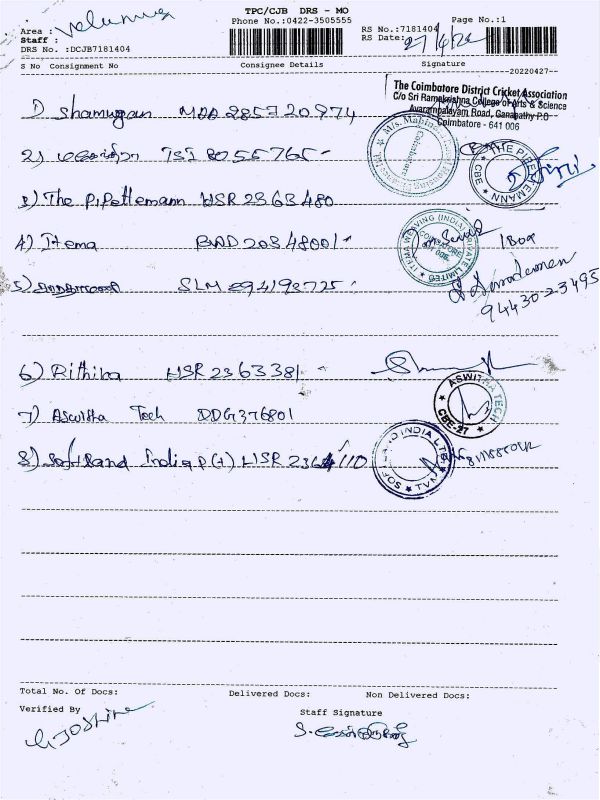 TPC/CJB DRS - MO
Phone No.:0422-3505555
Page No.:1
Area :
Staff :
DRS No. :DCJB7181404
RS No.:7181404
RS Date: 27/4/22
S No Consignment No Consignee Details Signature
20220427
The Coimbatore District Cricket Association
C/o Sri Ramakrishna College of Arts & Science
Avarampalayam Road, Ganapathy P.O
Coimbatore - 641 006
1) Shamugan MDD 285720974
2) மகேந்திரா TSI 8055765
THE PIPETTEMANN
CBE
3) The P.Pettemann HSR 2363480
4) Itema BAD 20348001
ITEMA WEAVING (INDIA) PRIVATE LIMITED
COIMBATORE
5) SLM 894193725
9443023495
6) Rithika HSR 2363381
7) Aswitha Tech DDG376801
ASWITHA TECH
CBE-27
8) Softland India P(t) HSR 2364110
SOFTLAND INDIA LTD
TVM
Total No. Of Docs: Delivered Docs: Non Delivered Docs:
Verified By
Staff Signature